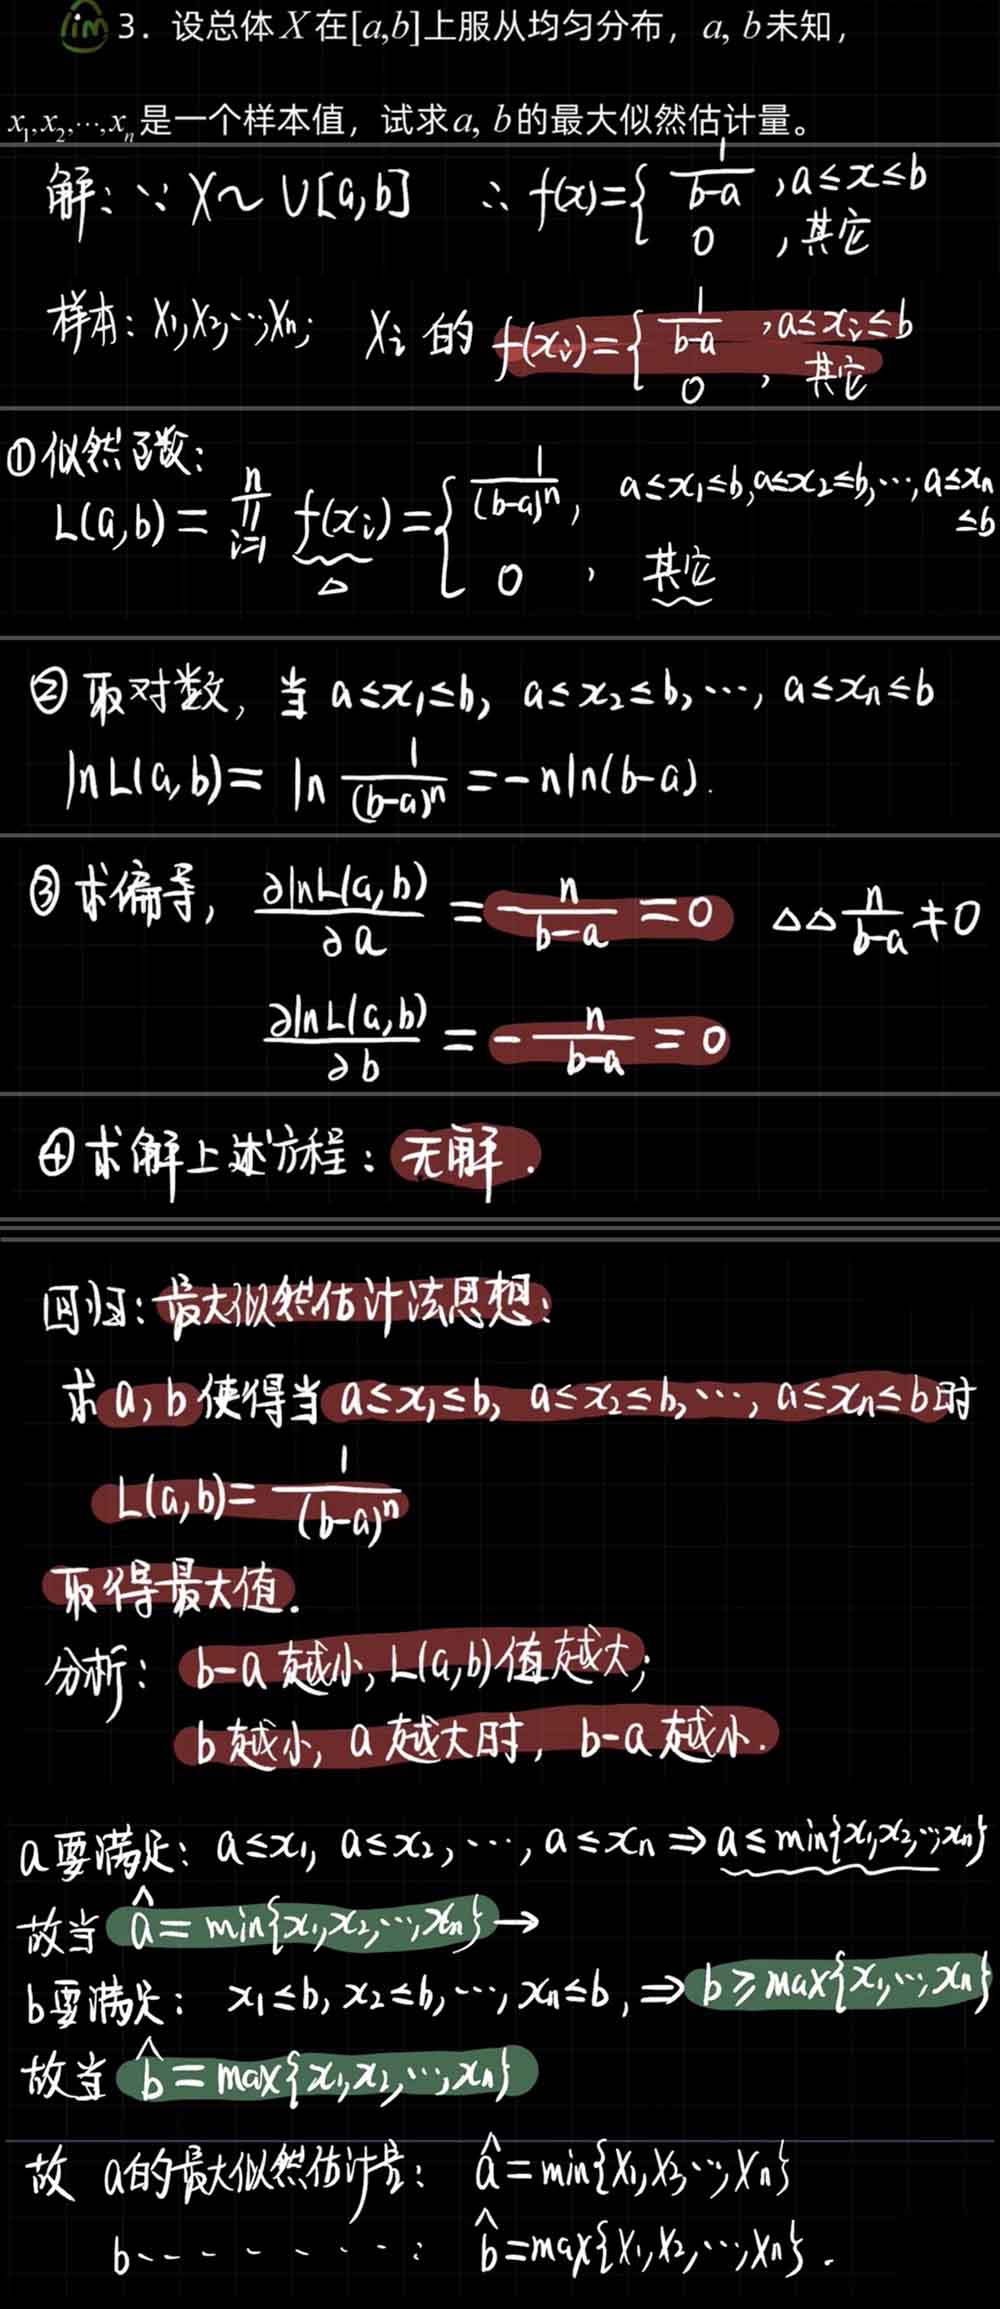 lim 3. 设总体X在[a,b]上服从均匀分布，a, b未知，
x₁,x₂,···,xₙ是一个样本值，试求a, b的最大似然估计量。
解: ∵ X~U[a,b] ∴ f(x)={ 1/(b-a) , a≤x≤b
0 , 其它
样本: X₁,X₂,···,Xₙ; Xᵢ 的 f(xᵢ)={ 1/(b-a) , a≤xᵢ≤b
0 , 其它
①似然函数:
L(a,b) = ∏ᵢ₌₁ⁿ f(xᵢ) = { 1/(b-a)ⁿ, a≤x₁≤b,a≤x₂≤b,···,a≤xₙ≤b
△ 0 , 其它
② 取对数, 当 a≤x₁≤b, a≤x₂≤b,···, a≤xₙ≤b
lnL(a,b) = ln 1/(b-a)ⁿ = -nln(b-a).
③ 求偏导, ∂lnL(a,b)/∂a = n/(b-a) = 0 △△ n/(b-a) ≠ 0
∂lnL(a,b)/∂b = - n/(b-a) = 0
④ 求解上述方程: 无解.
回归: 最大似然估计法思想:
求 a, b 使得当 a≤x₁≤b, a≤x₂≤b,···, a≤xₙ≤b时
L(a,b)= 1/(b-a)ⁿ
取得最大值.
分析: b-a 越小, L(a,b)值越大;
b 越小, a 越大时, b-a 越小.
a要满足: a≤x₁, a≤x₂,···, a≤xₙ ⇒ a≤min{x₁,x₂,···,xₙ}
故当 â = min{x₁,x₂,···,xₙ} →
b要满足: x₁≤b, x₂≤b,···,xₙ≤b, ⇒ b≥max{x₁,···,xₙ}
故当 b̂ = max{x₁,x₂,···,xₙ}
故 a的最大似然估计量: â = min{X₁,X₃···,Xₙ}
b- - - - - - - - : b̂ = max{X₁,X₂,···,Xₙ}.